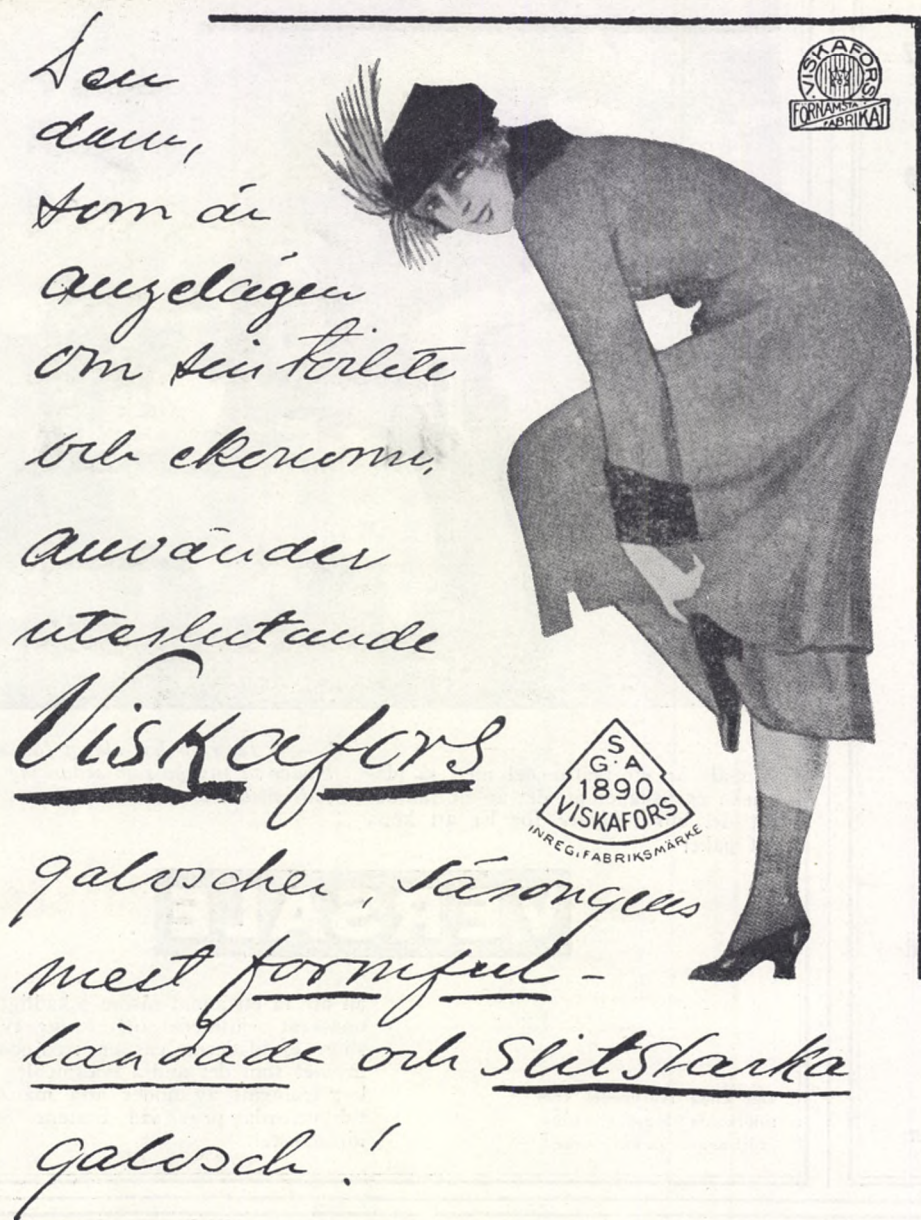 Den
dam,
som är
angelägen
om sin toilette
och ekonomi,
använder
uteslutande
Viskafors
galoscher, säsongens
mest formful-
ländade och slitstarka
galosch!
VISKAFORS
FÖRNÄMSTA
FABRIKAT
S.
G. A
1890
VISKAFORS
INREG. FABRIKSMÄRKE